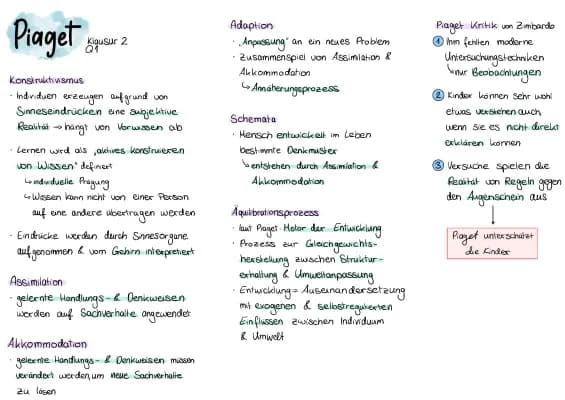 Piaget
Klausur 2
Q1
Konstruktivismus
· Individuen erzeugen aufgrund von
Sinneseindrücken eine subjektive
Realität → hängt von Vorwissen ab
· Lernen wird als „aktives Konstruieren
von Wissen" definiert
↳ individuelle Prägung
↳ Wissen kann nicht von einer Person
auf eine andere übertragen werden
· Eindrücke werden durch Sinnesorgane
aufgenommen & vom Gehirn interpretiert
Assimilation
· gelernte Handlungs- & Denkweisen
werden auf Sachverhalte angewendet
Akkommodation
· gelernte Handlungs- & Denkweisen müssen
verändert werden, um neue Sachverhalte
zu lösen
Adaption
· „Anpassung" an ein neues Problem
· Zusammenspiel von Assimilation &
Akkommodation
↳ Annäherungsprozess
Schemata
· Mensch entwickelt im Leben
bestimmte Denkmuster
↳ entstehen durch Assimilation &
Akkommodation
Äquilibrationsprozess
· laut Piaget Motor der Entwicklung
· Prozess zur Gleichgewichts-
herstellung zwischen Struktur-
erhaltung & Umweltanpassung
· Entwicklung = Auseinandersetzung
mit exogenen & selbstregulierten
Einflüssen zwischen Individuum
& Umwelt
Piaget Kritik von Zimbardo
① Ihm fehlten moderne
Untersuchungstechniken
↳ nur Beobachtungen
② Kinder können sehr wohl
etwas verstehen auch,
wenn sie es nicht direkt
erklären können
③ Versuche spielen die
Realität von Regeln gegen
den Augenschein aus
Piaget unterschätzt
die Kinder